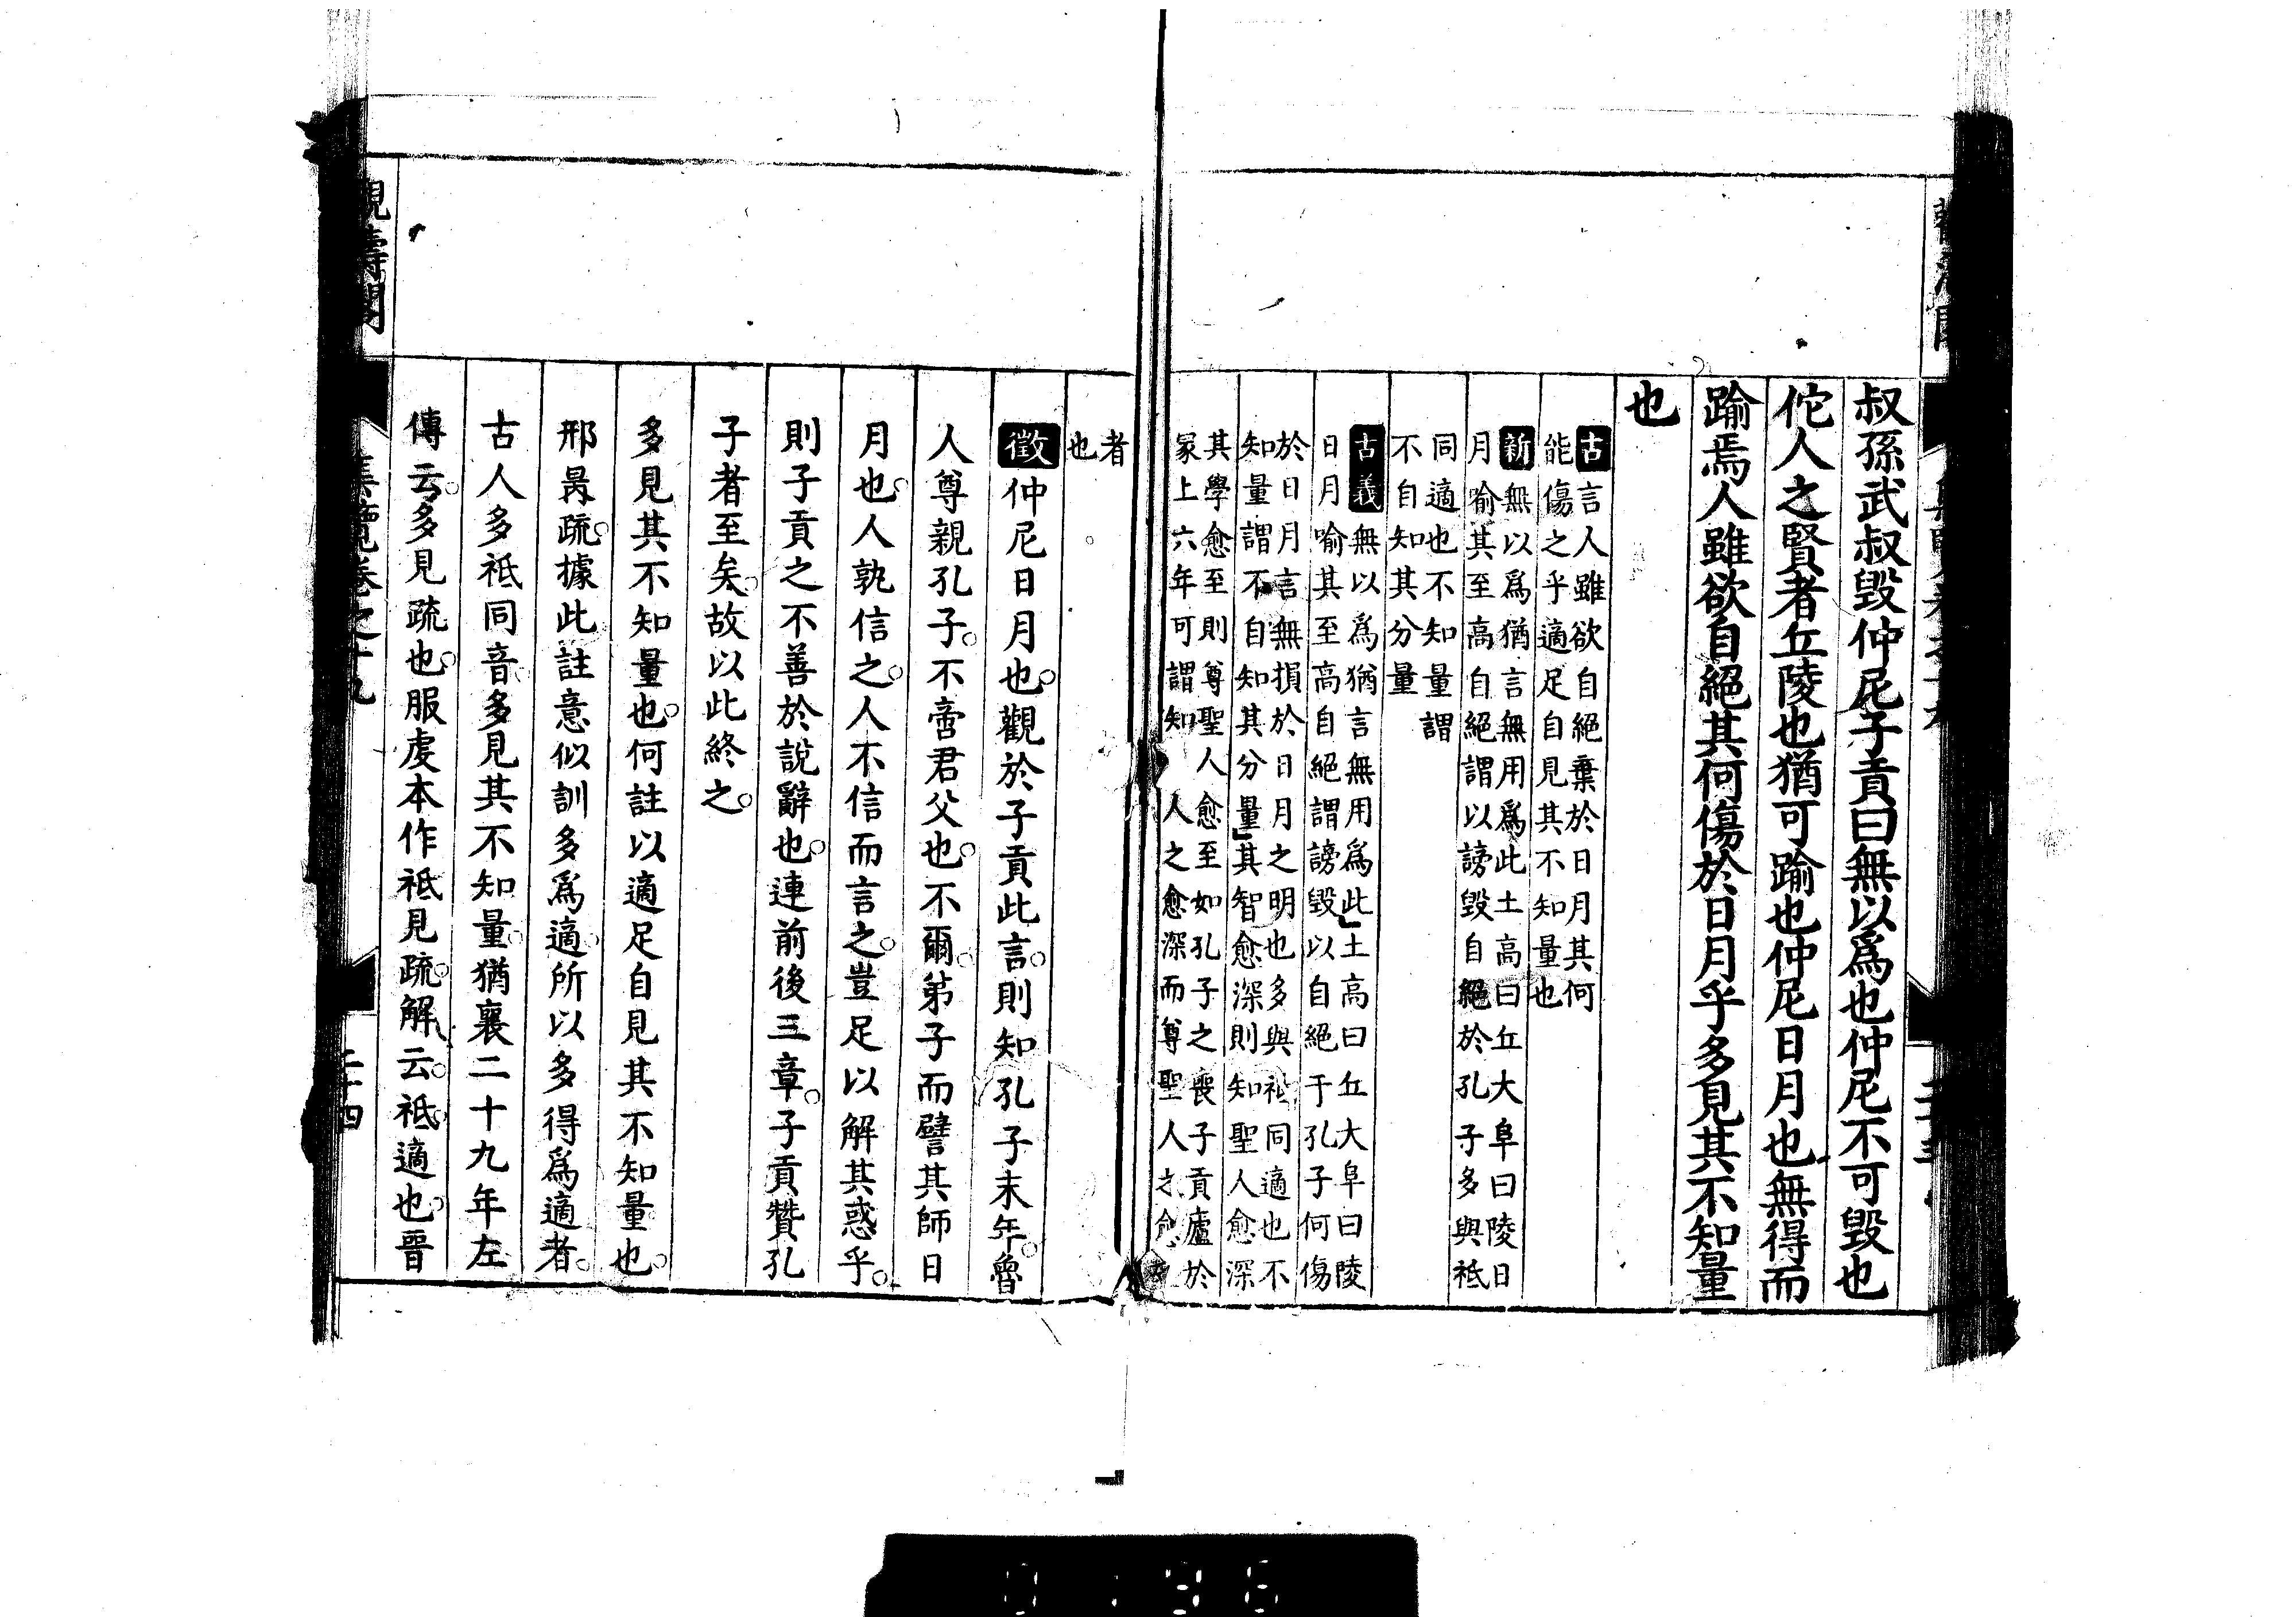 叔孫武叔毀仲尼子貢曰無以爲也仲尼不可毀也
佗人之賢者丘陵也猶可踰也仲尼日月也無得而
踰焉人雖欲自絕其何傷於日月乎多見其不知量
也
古言人雖欲自絕棄於日月其何
能傷之乎適足自見其不知量也
新無以爲猶言無用爲此土高曰丘大阜曰陵日
月喻其至高自絕謂以謗毀自絕於孔子多與祗
同適也不知量謂
不自知其分量
古義無以爲猶言無用爲此土高曰丘大阜曰陵
日月喻其至高自絕謂謗毀以自絕于孔子何傷
於日月言無損於日月之明也多與祗同適也不
知量謂不自知其分量其智愈深則知聖人愈深
其學愈至則尊聖人愈至如孔子之喪子貢廬於
冢上六年可謂知人之愈深而尊聖人之愈
者
也
徵仲尼日月也觀於子貢此言則知孔子末年魯
人尊親孔子不啻君父也不爾弟子而譬其師日
月也人孰信之人不信而言之豈足以解其惑乎
則子貢之不善於說辭也連前後三章子貢贊孔
子者至矣故以此終之
多見其不知量也何註以適足自見其不知量也
邢昺疏據此註意似訓多爲適所以多得爲適者
古人多祗同音多見其不知量猶襄二十九年左
傳云多見疏也服虔本作祗見疏解云祗適也晉
覽卷之十九
二十四